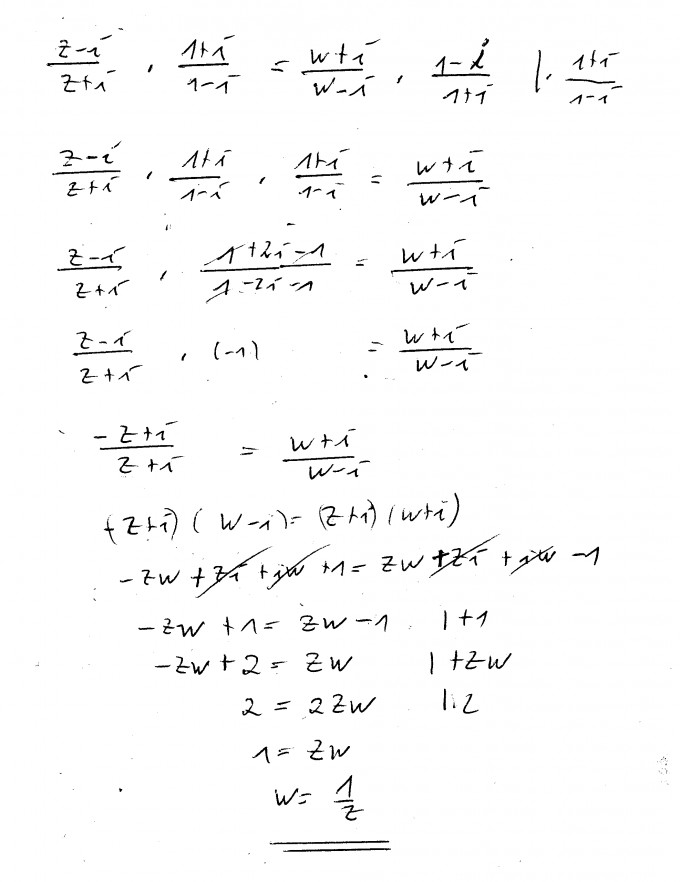 (z-i)/(z+i) · (1+i)/(1-i) = (w+i)/(w-i) · (1-i)/(1+i) |· (1+i)/(1-i)
(z-i)/(z+i) · (1+i)/(1-i) · (1+i)/(1-i) = (w+i)/(w-i)
(z-i)/(z+i) · (1+2i-1)/(1-2i-1) = (w+i)/(w-i)
(z-i)/(z+i) · (-1) = (w+i)/(w-i)
(-z+i)/(z+i) = (w+i)/(w-i)
(-z+i) (w-i) = (z+i) (w+i)
-zw + zi + iw + 1 = zw + zi + iw - 1
-zw + 1 = zw - 1 |+1
-zw + 2 = zw |+zw
2 = 2zw |:2
1 = zw
w = 1/z